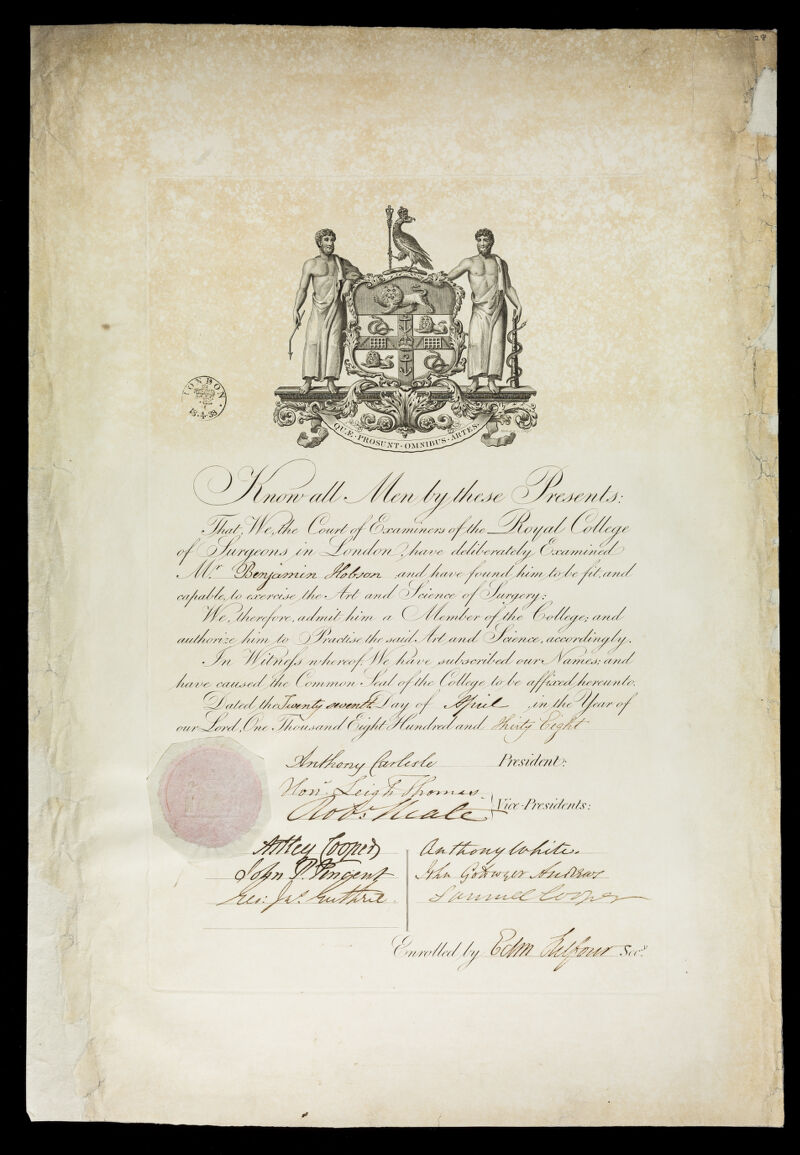 28
QUÆ · PROSUNT · OMNIBUS · ARTES
LONDON
Know all Men by these Presents:
That, We, the Court of Examiners of the Royal College
of Surgeons in London, have deliberately Examined
Mr Benjamin Hobson and have found him to be fit and
capable, to exercise, the Art and Science of Surgery:
We, therefore, admit him a Member of the College; and
authorize him to Practise the said Art and Science, accordingly.
In Witness whereof, We have subscribed our Names; and
have caused the Common Seal of the College to be affixed hereunto.
Dated the Twenty seventh Day of April, in the Year of
our Lord, One Thousand Eight Hundred and thirty Eight
Anthony Carlisle President:
Honr. Leigh Thomas
Vice-Presidents:
Astley Cooper Anthony White
John P. Vincent John Goldwyer Andrews
Geo: Jas. Guthrie Samuel Cooper
Enrolled by Edm Belfour Secy.